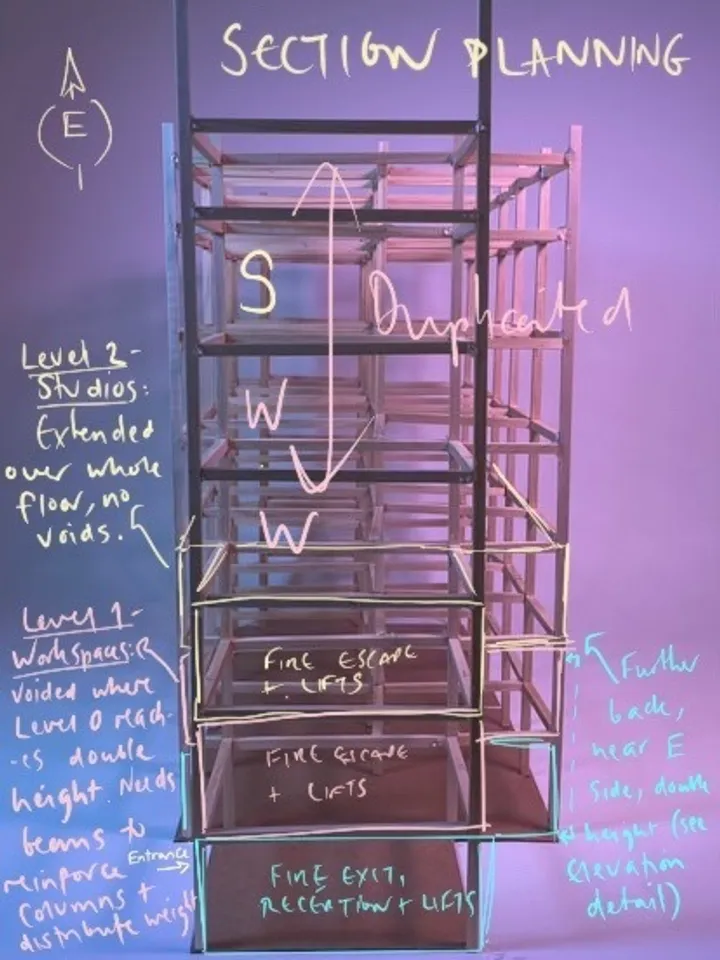 SECTION PLANNING
E
S
Duplicated
W
W
Level 2 -
Studios:
Extended
over whole
floor, no
voids.
Level 1 -
Workspaces:
voided where
Level 0 reach-
-es double
height. Needs
beams to
reinforce
columns +
distribute weight
FIRE ESCAPE
+ LIFTS
FIRE ESCAPE
+ LIFTS
Entrance
FIRE EXIT,
RECEPTION + LIFTS
Further
back,
near E
side, double
height (see
elevation
detail)